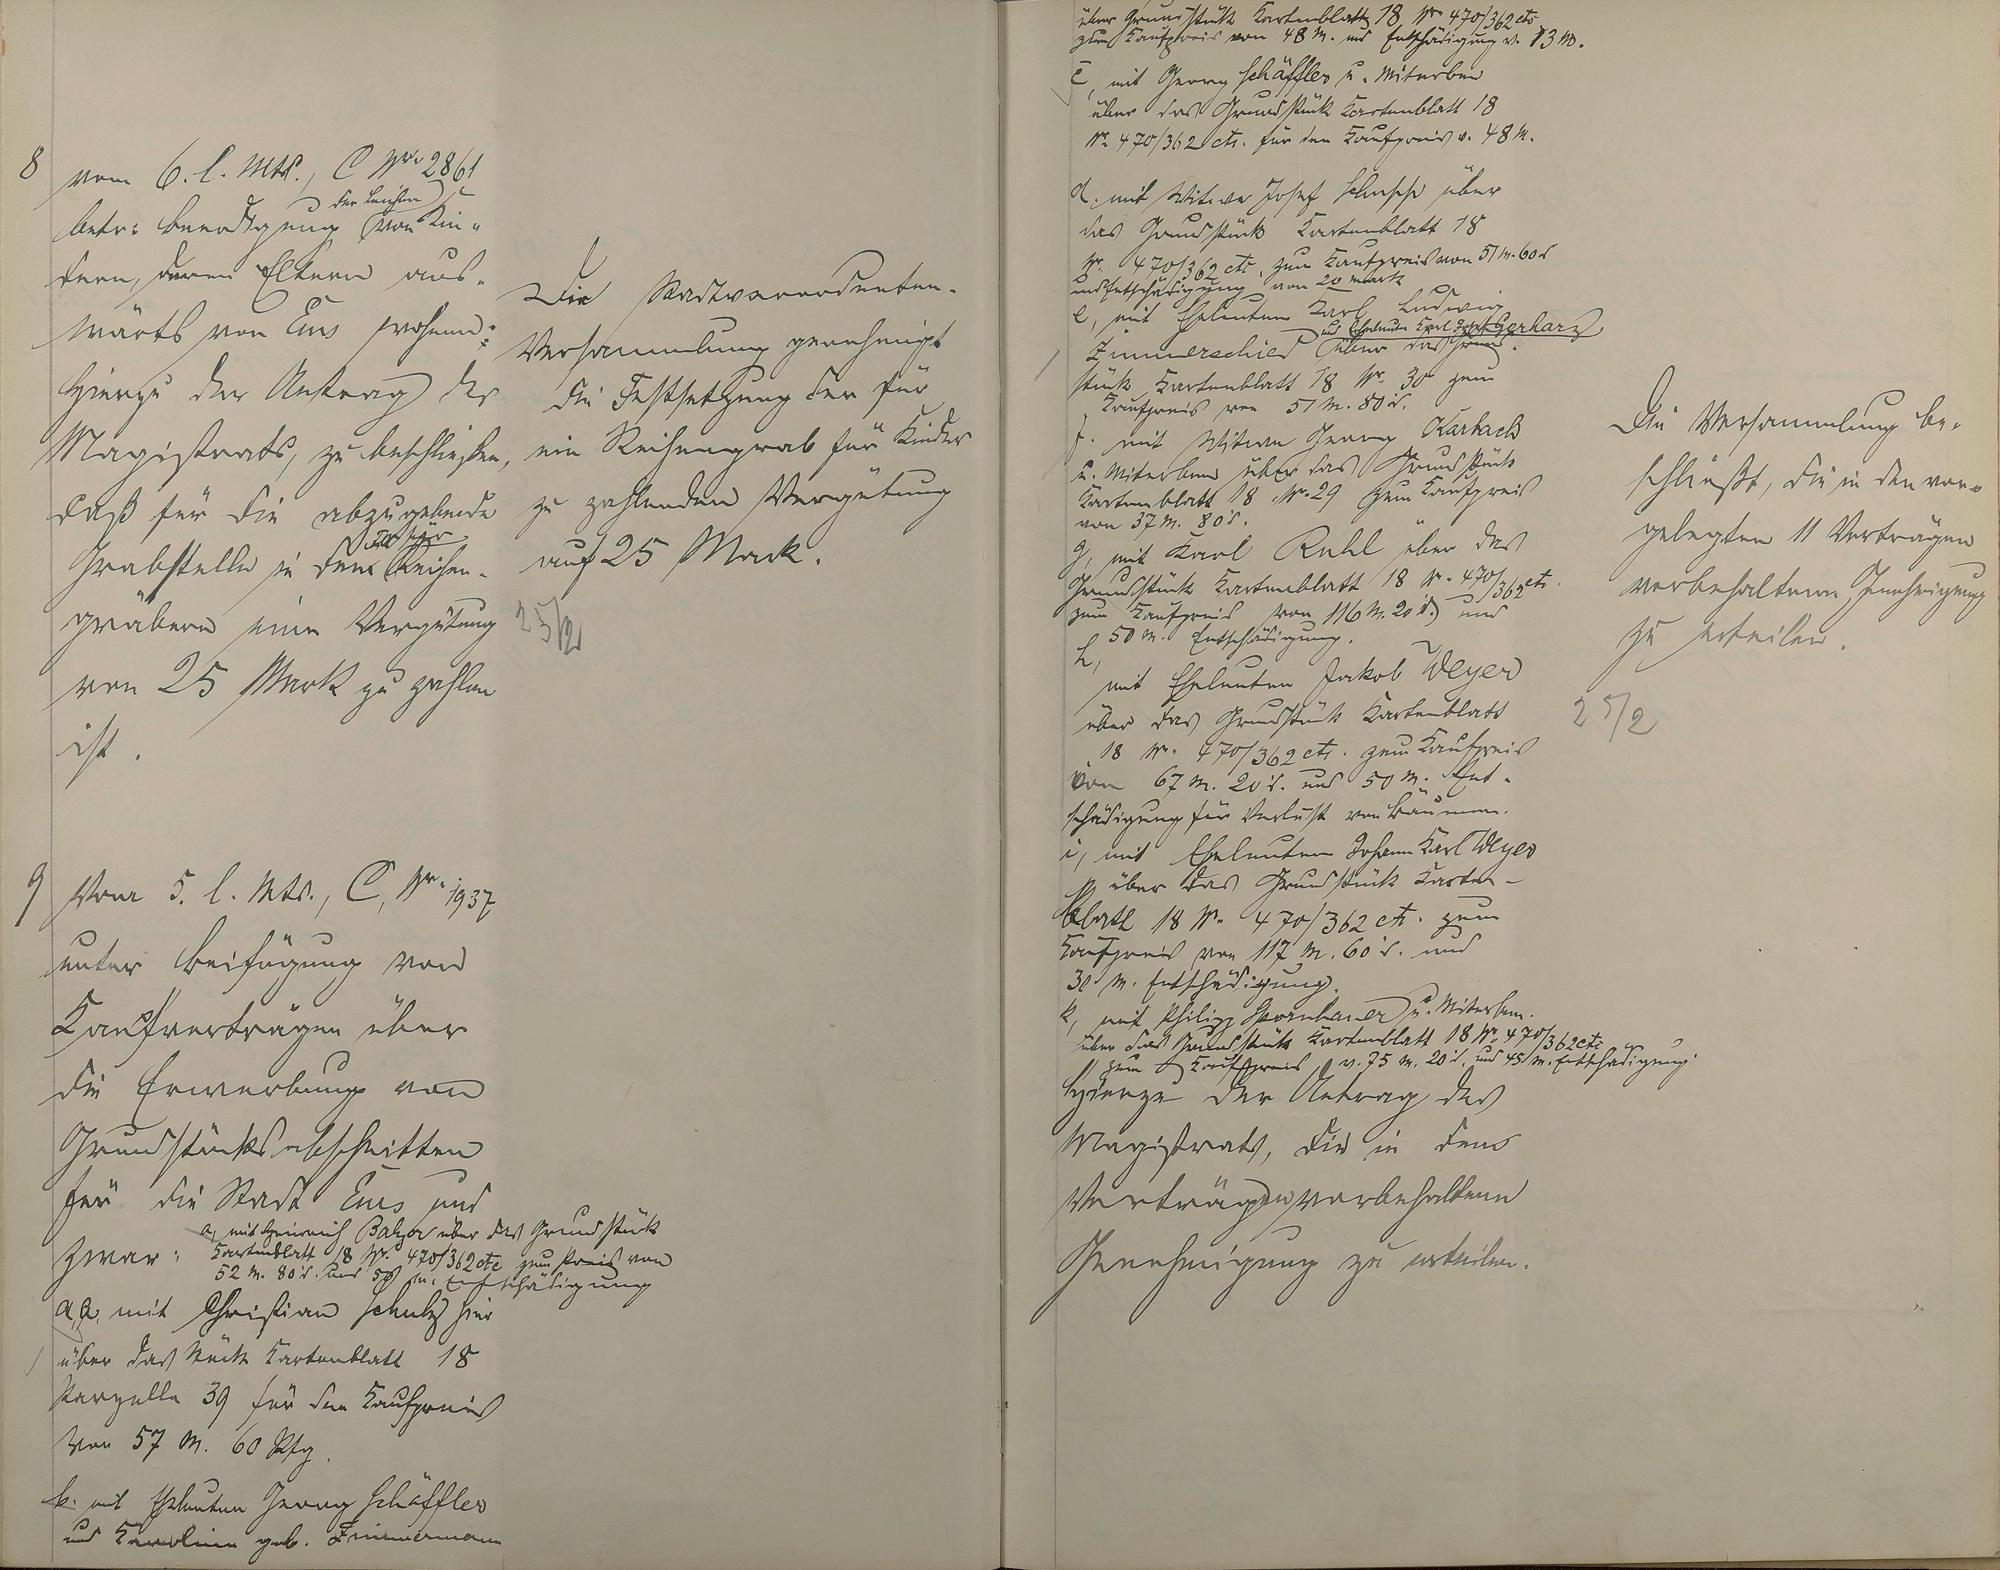 8
vom 6. l. Mts., C Nr. 2861
der Leichen
betr: Beerdigung von Kin-
dern, deren Eltern aus-
wärts von Ems wohnen:
Hierzu der Antrag des
Magistrats, zu beschließen,
daß für die abzugebende
Grabstelle in den Reihen-
gräbern eine Vergütung
von 25 Mark zu zahlen
ist.
Die Stadtverordneten-
Versammlung genehmigt
die Festsetzung der für
ein Reihengrab für Kinder
zu zahlenden Vergütung
auf 25 Mark.
25/2
9
Vom 5. l. Mts., C, Nr. 1937
unter Beifügung von
Kaufverträgen über
die Erwerbung von
Grundstücksabschnitten
für die Stadt Ems und
zwar:
a, mit Heinrich Balzer über das Grundstück
Kartenblatt 18 Nr. 470/362 etc zum Preis von
52 M. 80 d. und 50 M. Entschädigung
a,a, mit Christian Schulz hier
über das Stück Kartenblatt 18
Parzelle 39 für den Kaufpreis
von 57 M. 60 Pfg.
b. mit Eheleuten Georg Schäffler
und Karoline geb. Zimmermann
über Grundstück Kartenblatt 18 Nr. 470/362 etc
zum Kaufpreis von 48 M. und Entschädigung v. 13 M.
c, mit Georg Schäffler u. Miterben
über das Grundstück Kartenblatt 18
Nr. 470/362 etc. für den Kaufpreis v. 48 M.
d. mit Witwe Josef über
das Grundstück Kartenblatt 18
Nr. 470/362 etc, zum Kaufpreis von 51 M. 60 d
und Entschädigung von 20 Mark
e, mit Eheleuten Karl Ludwig
und Eheleute Karl Josef Gerharz
Zimmerschied über das Grund-
stück Kartenblatt 18 Nr. 30 zum
Kaufpreis von 51 M. 80 d.
f. mit Witwe Georg Karbach
u. Miterben über das Grundstück
Kartenblatt 18 Nr. 29 zum Kaufpreis
von 37 M. 80 d.
g, mit Karl Ruhl über das
Grundstück Kartenblatt 18 Nr. 470/362 etc.
zum Kaufpreis von 116 M. 20 d. und
50 M. Entschädigung.
h,
mit Eheleuten Jakob Weyer
über das Grundstück Kartenblatt
18 Nr. 470/362 etc. zum Kaufpreis
von 67 M. 20 d. und 50 M. Ent-
schädigung für Verlust von Bäumen.
i, mit Eheleuten Johann Karl Weyer
über das Grundstück Karten-
blatt 18 Nr. 470/362 etc. zum
Kaufpreis von 117 M. 60 d. und
30 M. Entschädigung.
k, mit Philipp u. Miterben.
über das Grundstück Kartenblatt 18 Nr. 470/362 etc
zum Kaufpreis v. 75 M. 20 d. und 45 M. Entschädigung.
Hierzu der Antrag des
Magistrats, die in den
Verträgen vorbehaltene
Genehmigung zu erteilen.
Die Versammlung be-
schließt, die in den vor-
gelegten 11 Verträgen
vorbehaltene Genehmigung
zu erteilen.
25/2